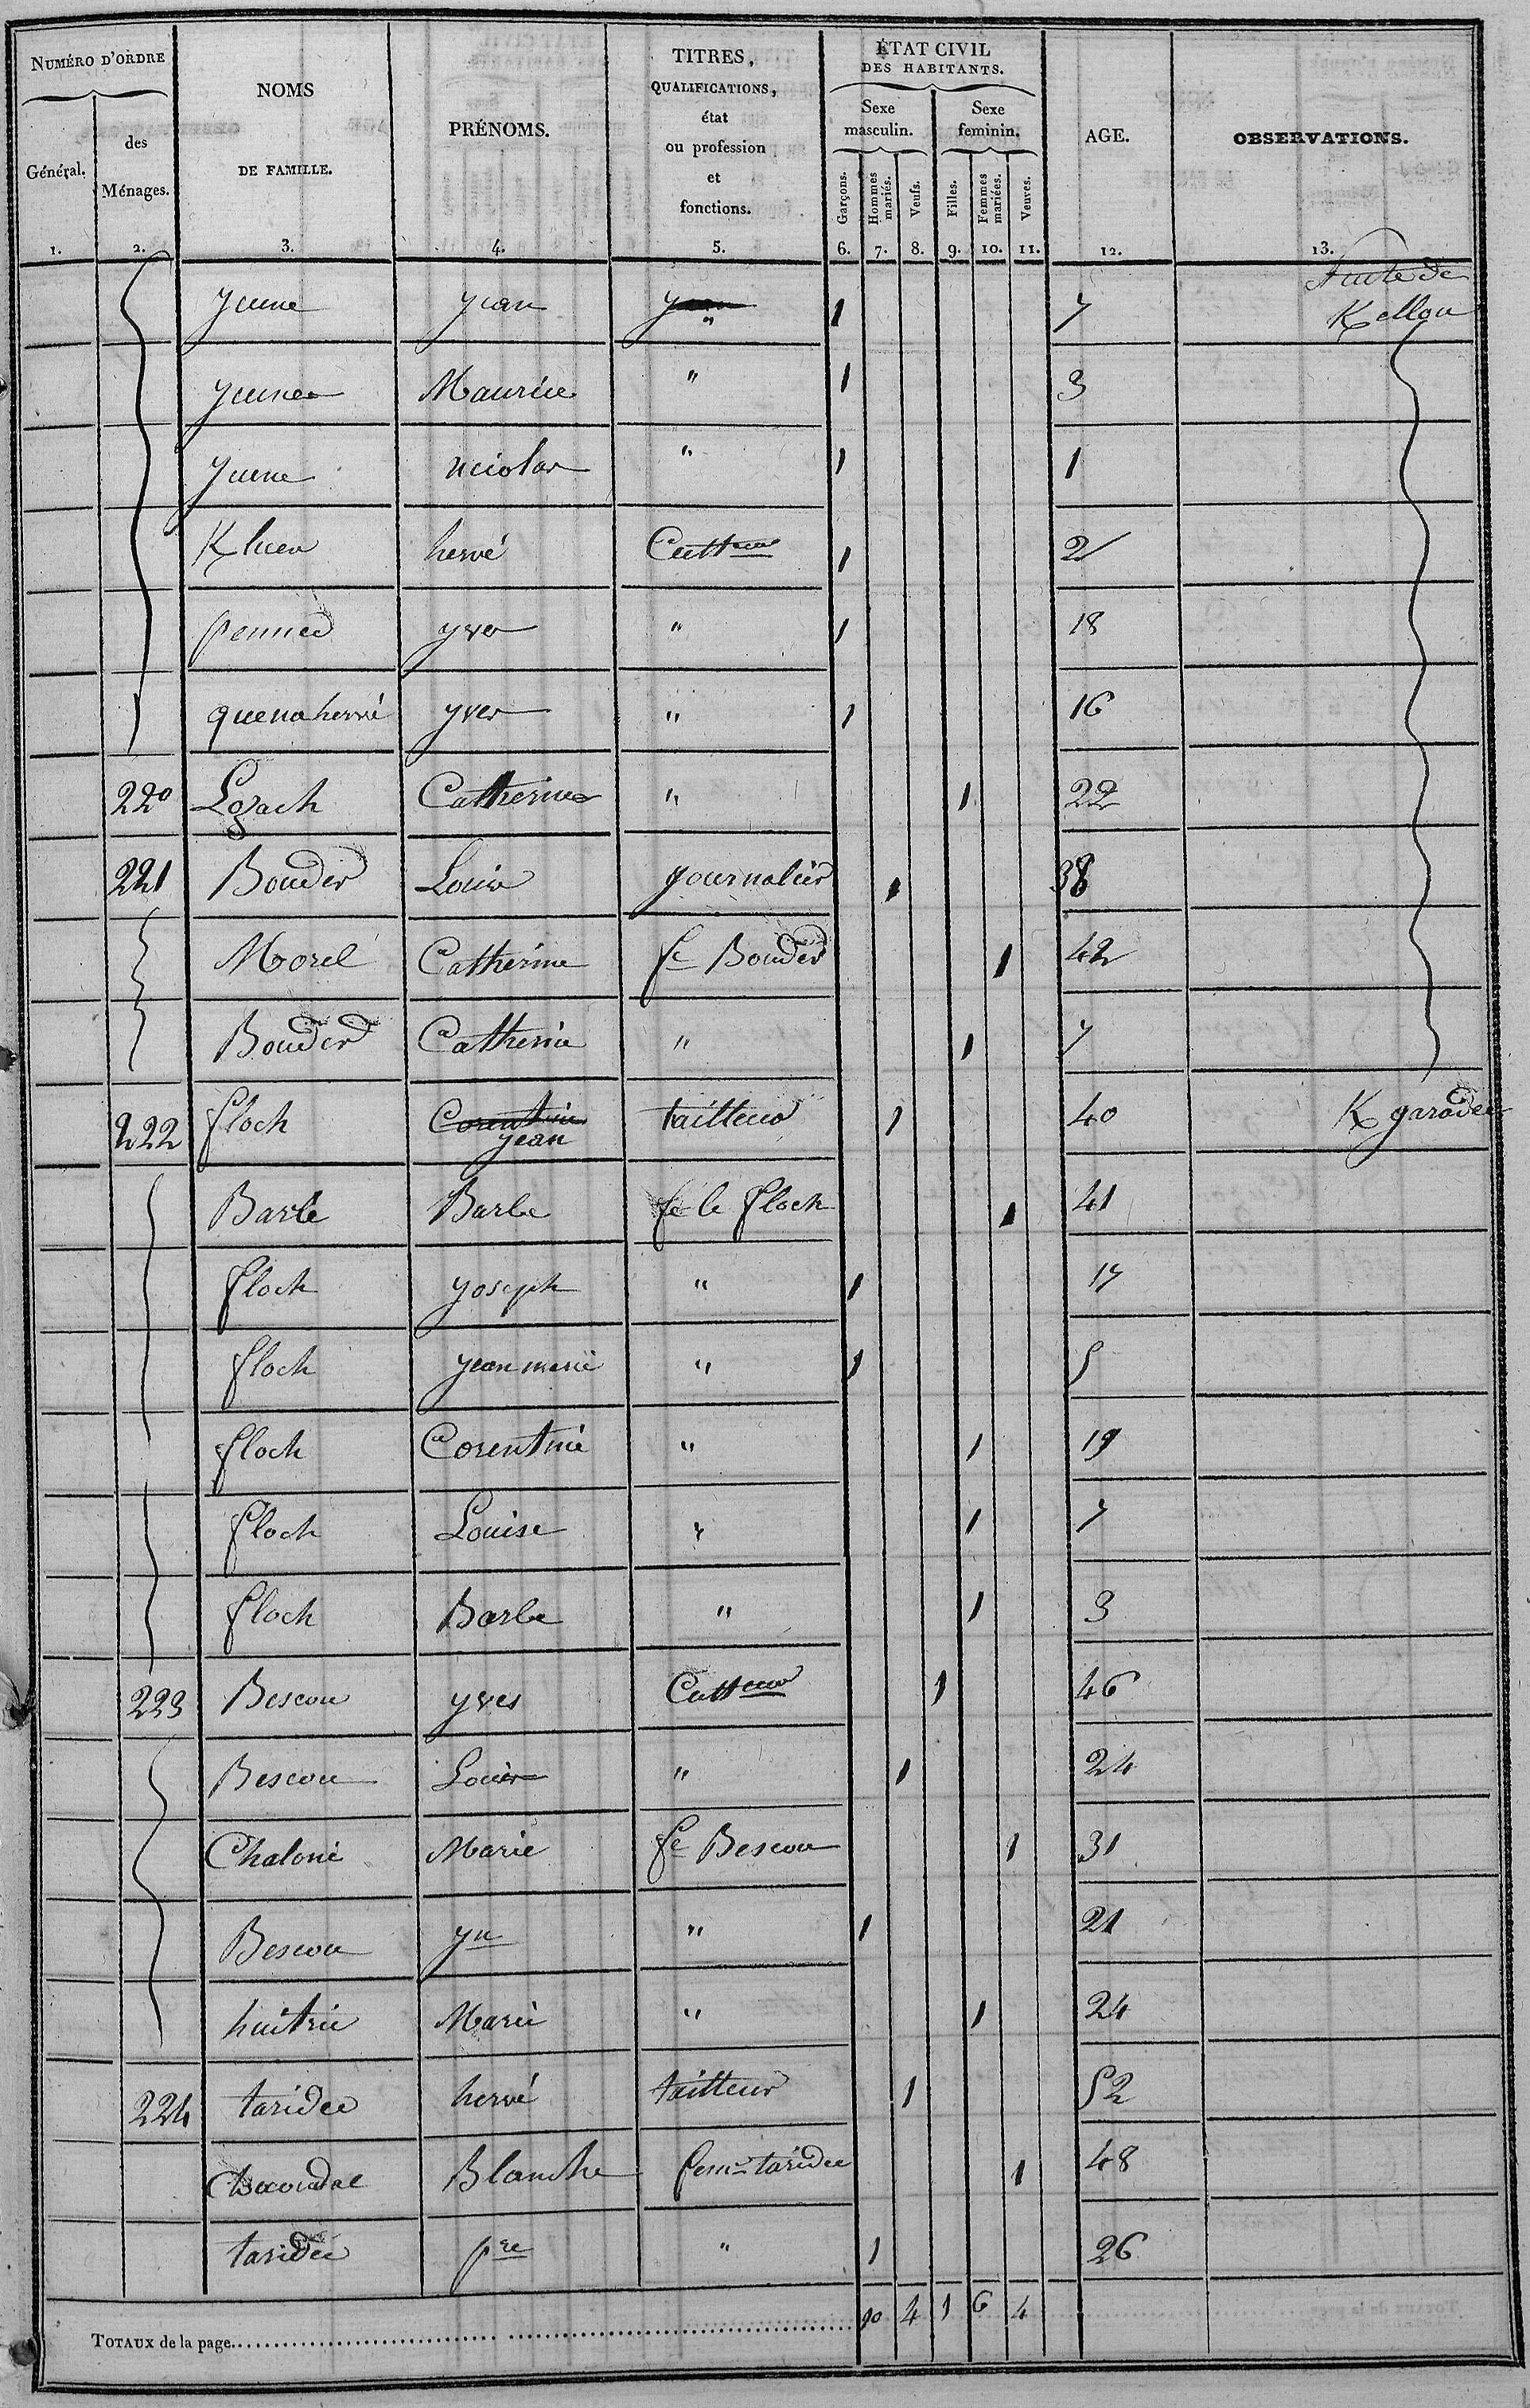 NUMÉRO D'ORDRE
Général.
des Ménages.
NOMS DE FAMILLE.
PRÉNOMS.
TITRES, QUALIFICATIONS, état ou profession et fonctions.
ÉTAT CIVIL DES HABITANTS.
Sexe masculin.
Sexe feminin.
Garçons. Hommes mariés. Veufs. Filles. Femmes mariées. Veuves.
AGE.
OBSERVATIONS.
1. 2. 3. 4. 5. 6. 7. 8. 9. 10. 11. 12. 13.
Suite de
yean " 1 7 Kellou
Maurice " 1 3
" 1 1
hervé Cultteur 1 2
yves " 1 18
quenahervé yves " 1 16
220 Lozach Catherine " 1 22
221 Bouder Louis journalier 1 38
Morel Catherine fe Bouder 1 42
Bouder Catherine " 1 7
222 floch Corentine yean tailleur 1 40 K garadec
Barbe fe le floch 1 41
floch yoseph " 1 17
floch yean marie " 1 5
floch Corentine " 1 19
floch Louise " 1 7
floch Barbe " 1 3
223 Bescou yves Cultteur 1 46
Bescou Louis " 1 24
Chaloni Marie fe Bescou 1 31
Bescou yn " 1 21
huitric Marie " 1 24
224 taridec hervé tailleur 1 52
Blanche feme taridec 1 48
taridec pre " 1 26
TOTAUX de la page 10 4 1 6 4